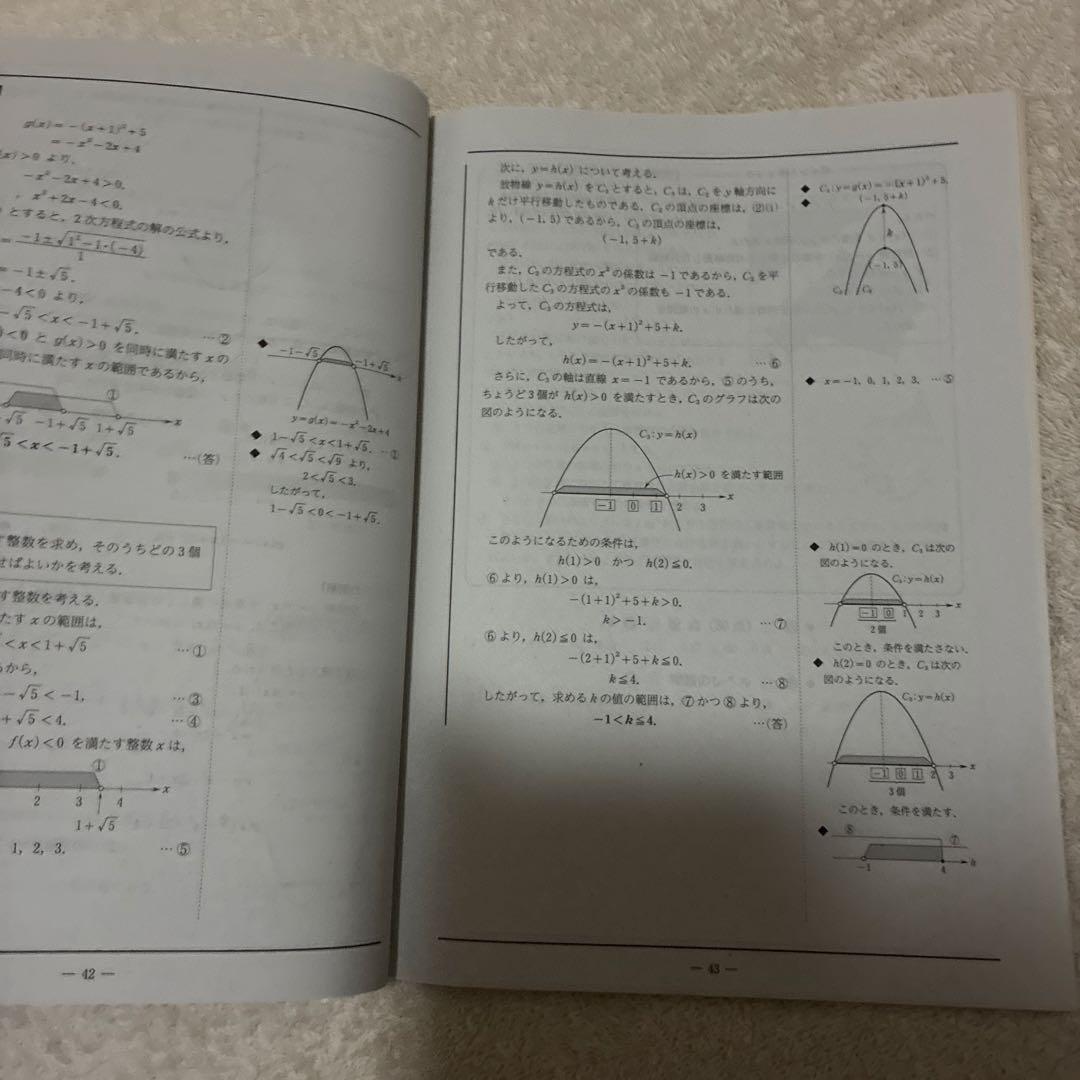 g(x)=-(x+1)²+5
=-x²-2x+4
(x)>0 より,
-x²-2x+4>0.
x²+2x-4<0.
とすると, 2次方程式の解の公式より,
=\frac{-1±√1²-1·(-4)}{1}
=-1±√5.
-4<0 より,
-√5<x<-1+√5. …②
<0 と g(x)>0 を同時に満たす x の
同時に満たす x の範囲であるから,
①
√5 -1+√5 1+√5 x
√5<x<-1+√5. …(答)
す整数を求め, そのうちどの3個
せばよいかを考える.
す整数を考える.
たす x の範囲は,
<x<1+√5 …①
るから,
-√5<-1, …③
+√5<4. …④
f(x)<0 を満たす整数 x は,
①
2 3 4 x
1+√5
1, 2, 3. …⑤
◆ -1-√5 -1+√5 x
y=g(x)=-x²-2x+4
◆ 1-√5<x<1+√5. …①
◆ √4<√5<√9 より,
2<√5<3.
したがって,
1-√5<0<-1+√5.
— 42 —
次に, y=h(x) について考える.
放物線 y=h(x) を C₃ とすると, C₃ は, C₂ を y 軸方向に
k だけ平行移動したものである. C₂ の頂点の座標は, (2)(i)
より, (-1, 5) であるから, C₃ の頂点の座標は,
(-1, 5+k)
である.
また, C₂ の方程式の x² の係数は -1 であるから, C₂ を平
行移動した C₃ の方程式の x² の係数も -1 である.
よって, C₃ の方程式は,
y=-(x+1)²+5+k.
したがって,
h(x)=-(x+1)²+5+k. …⑥
さらに, C₃ の軸は直線 x=-1 であるから, ⑤のうち,
ちょうど3個が h(x)>0 を満たすとき, C₃ のグラフは次の
図のようになる.
C₃:y=h(x)
h(x)>0 を満たす範囲
-1 0 1 2 3 x
このようになるための条件は,
h(1)>0 かつ h(2)≦0.
⑥より, h(1)>0 は,
-(1+1)²+5+k>0.
k>-1. …⑦
⑥より, h(2)≦0 は,
-(2+1)²+5+k≦0.
k≦4. …⑧
したがって, 求める k の値の範囲は, ⑦かつ⑧より,
-1<k≦4. …(答)
◆ C₂:y=g(x)=-(x+1)²+5.
◆ (-1, 5+k)
k
(-1, 5)
C₃ C₂
◆ x=-1, 0, 1, 2, 3. …⑤
◆ h(1)=0 のとき, C₃ は次の
図のようになる.
C₃:y=h(x)
-1 0 1 2 3 x
2個
このとき, 条件を満たさない.
◆ h(2)=0 のとき, C₃ は次の
図のようになる.
C₃:y=h(x)
-1 0 1 2 3 x
3個
このとき, 条件を満たす.
◆ ⑧ ⑦
-1 4 k
— 43 —